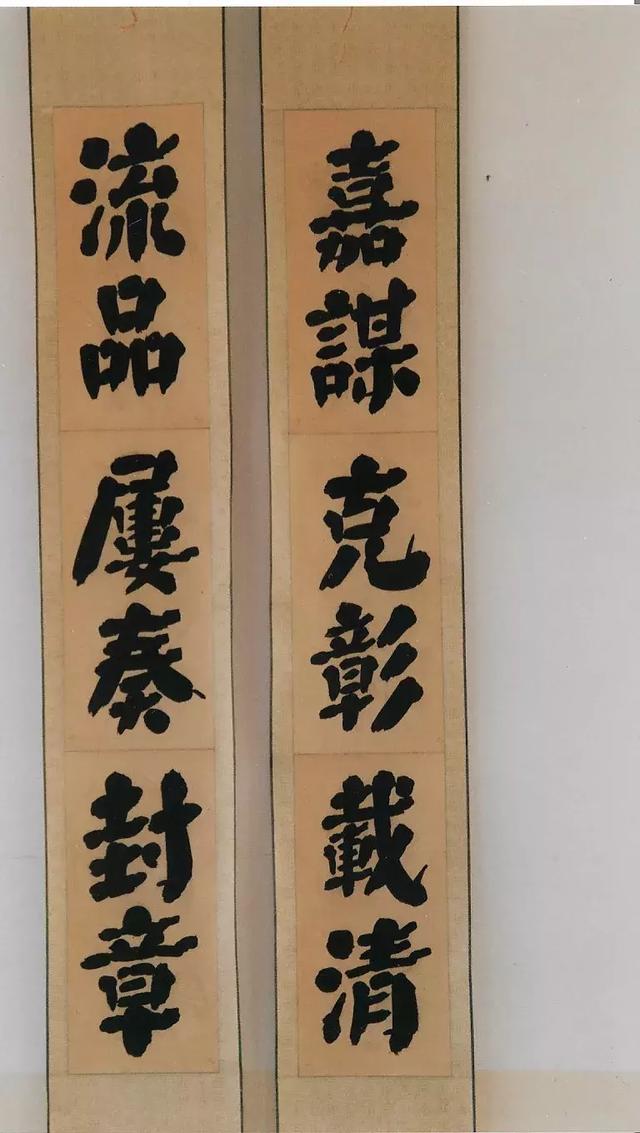 嘉謀克彰載清
流品屢奏封章